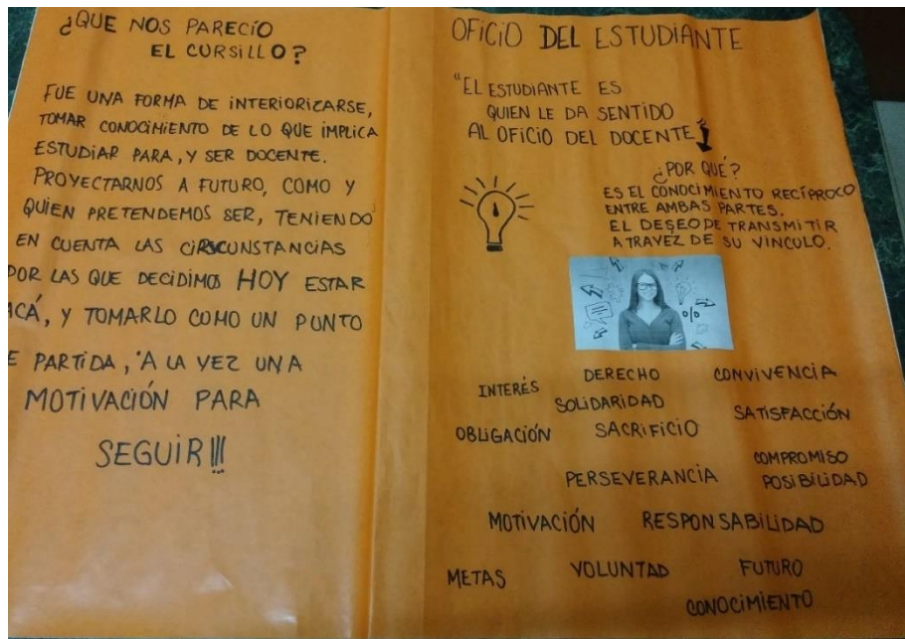 ¿QUE NOS PARECÍO
EL CURSILLO?
FUE UNA FORMA DE INTERIORIZARSE,
TOMAR CONOCIMIENTO DE LO QUE IMPLICA
ESTUDIAR PARA, Y SER DOCENTE.
PROYECTARNOS A FUTURO, COMO Y
QUIEN PRETENDEMOS SER, TENIENDO
EN CUENTA LAS CIRCUNSTANCIAS
POR LAS QUE DECIDIMOS HOY ESTAR
ACÁ, Y TOMARLO COMO UN PUNTO
E PARTIDA, A LA VEZ UNA
MOTIVACIÓN PARA
SEGUIR!!!
OFICIO DEL ESTUDIANTE
"EL ESTUDIANTE ES
QUIEN LE DA SENTIDO
AL OFICIO DEL DOCENTE"
¿POR QUÉ?
ES EL CONOCIMIENTO RECÍPROCO
ENTRE AMBAS PARTES.
EL DESEO DE TRANSMITIR
A TRAVEZ DE SU VINCULO.
%
INTERÉS DERECHO CONVIVENCIA
SOLIDARIDAD SATISFACCIÓN
OBLIGACIÓN SACRIFICIO
COMPROMISO
PERSEVERANCIA POSIBILIDAD
MOTIVACIÓN RESPONSABILIDAD
METAS VOLUNTAD FUTURO
CONOCIMIENTO